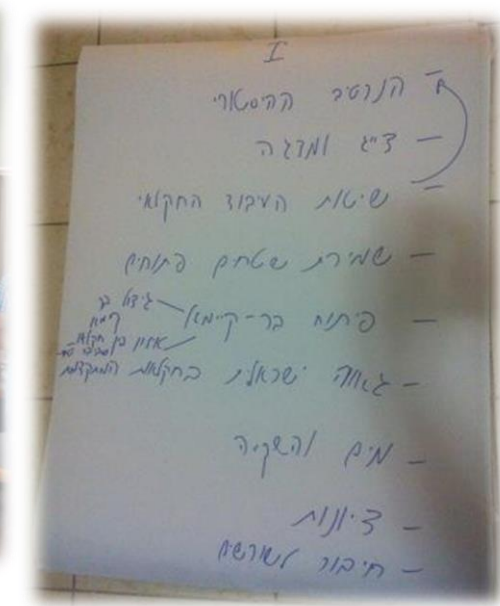 I
- הנרטיב ההיסטורי
- דייג ומדגה
- שיטות העיבוד החקלאי
- שמירת שטחים פתוחים
- פיתוח בר-קיימא
גידול בר קיימא
איזון בין חקלאות
- גאווה ישראלית בחקלאות המתקדמת
- מים והשקיה
- ציונות
- חיבור לשורשים